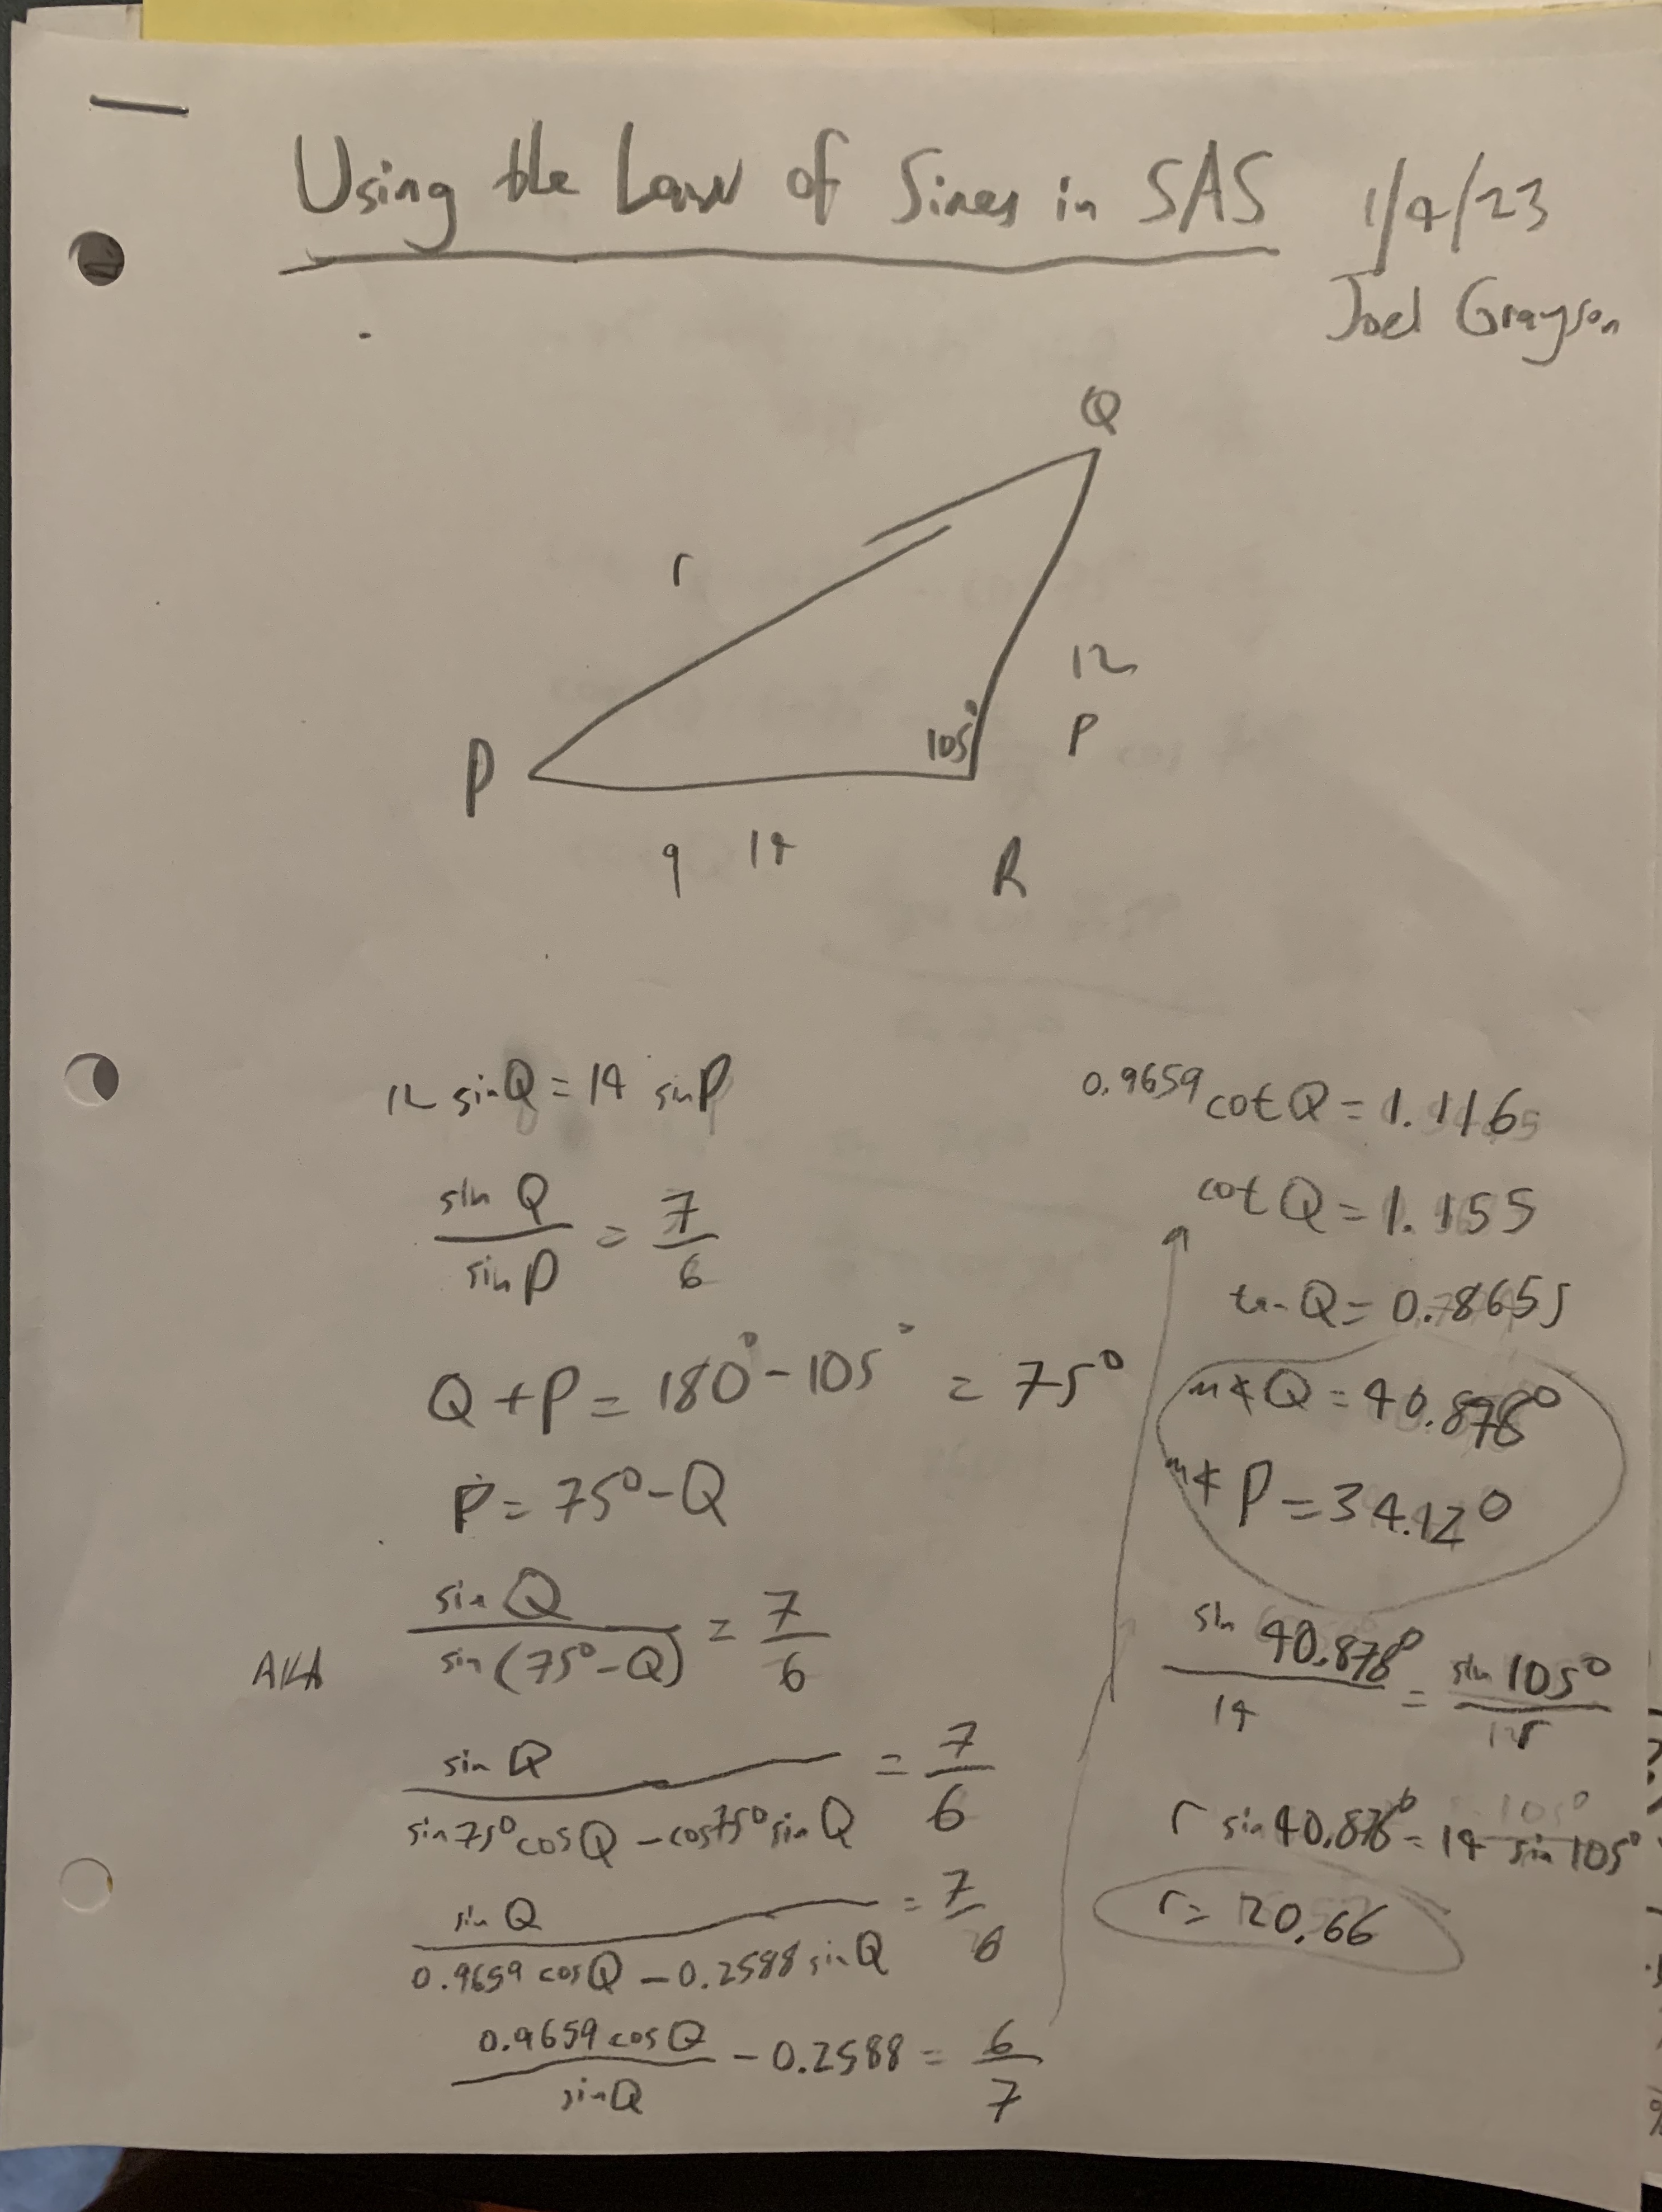 Using the Law of Sines in SAS
1/4/23
Joel Grayson
Q
r
12
105°
p
P
q 14
R
12 sinQ = 14 sinP
sin Q / sin P = 7/6
Q + P = 180° - 105° = 75°
P = 75° - Q
AKA sin Q / sin(75° - Q) = 7/6
sin Q / sin75° cosQ - cos75° sinQ = 7/6
sin Q / 0.9659 cosQ - 0.2588 sinQ = 7/6
0.9659 cosQ / sinQ - 0.2588 = 6/7
0.9659 cot Q = 1.116
cot Q = 1.155
tan Q = 0.8655
m∡Q = 40.878°
m∡P = 34.12°
sin 40.878° / 14 = sin 105° / r
r sin 40.878° = 14 sin 105°
r = 20.66